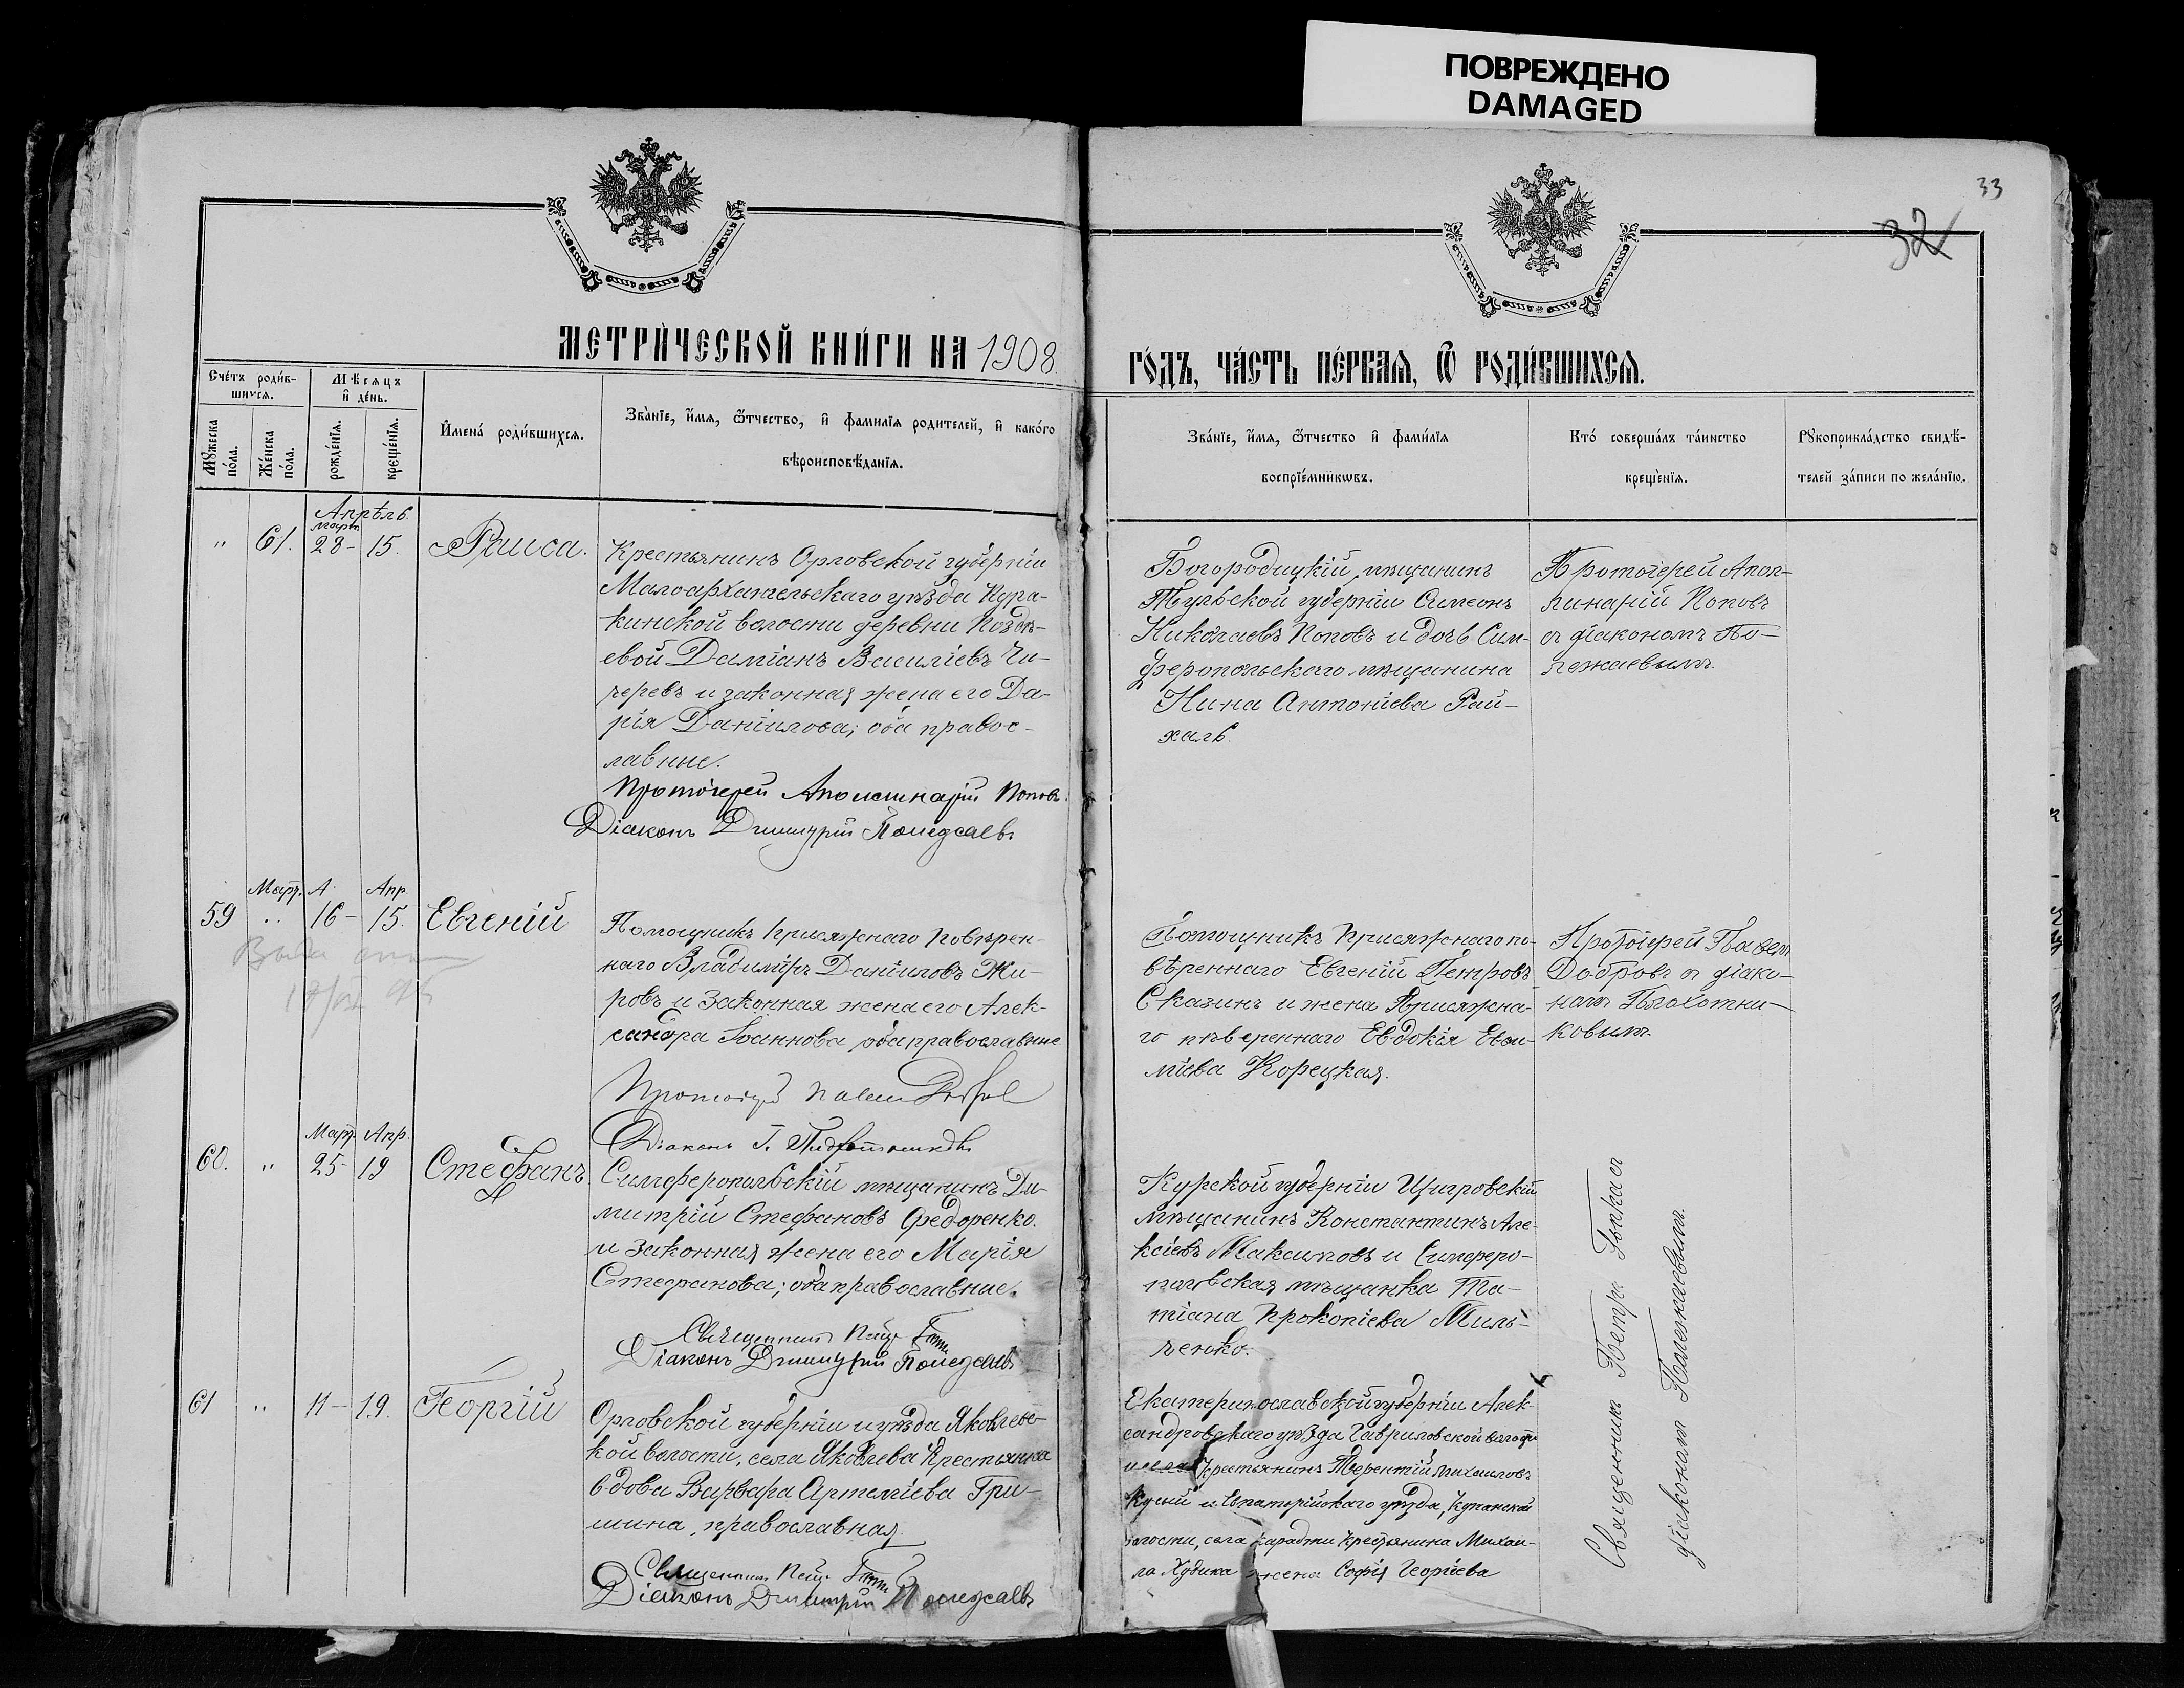 ПОВРЕЖДЕНО
DAMAGED
33
32
МЕТРИ́ЧЕСКОЙ КНИ́ГИ НА 1908
ГО́ДЪ, ЧА́СТЬ ПЕ́РВАѦ, Ѿ РОДИ́ВШИХСѦ.
Счетъ роди́в-
шихсѧ.
Мѣсѧцъ
и҆ де́нь.
Мꙋжеска по́ла.
Же́нска по́ла.
рожде́нїѧ.
креще́нїѧ.
И҆мена́ роди́вшихсѧ.
Зва́нїе, и҆́мѧ, ѻ҆́тчество, и҆ фамилїѧ родителей, и҆ како́го
вѣроисповѣ́данїѧ.
Зва́нїе, и҆́мѧ, ѻ҆́тчество и҆ фами́лїѧ
воспрїе́мникѡвъ.
Кто́ соверша́лъ та́инство
креще́нїѧ.
Рꙋкоприкла́дство свидѣ́-
телей за́писи по жела́нїю.
Апрѣль.
март.
" 61. 28- 15. Раиса.
Крестьянинъ Орловской губерніи
Малоархангельскаго уѣзда Кура-
кинской волости деревни Поздѣ-
евой Даміанъ Василіевъ Чи-
черевъ и законная жена его Да-
рія Даніилова; оба правос-
лавные.
Протоіерей Аполлинарій Поповъ.
Діаконъ Димитрій Полежаевъ
Богородицкій мѣщанинъ
Тульской губерніи Симеонъ
Николаевъ Поповъ и дочь Сим-
феропольскаго мѣщанина
Нина Антоніева Рай-
халь.
Протоіерей Апол-
линарій Поповъ
съ діакономъ По-
лежаевымъ.
Март. А. Апр.
59 " 16- 15. Евгеній
Помощникъ Присяжнаго Повѣрен-
наго Владиміръ Даніиловъ Жи-
ровъ и законная жена его Алек-
сандра Іоаннова, оба православные
Протоіерей Павелъ Добровъ
Діаконъ
Помощникъ Присяжнаго по-
вѣреннаго Евгеній Петровъ
Сказинъ и жена Присяжна-
го повѣреннаго Евдокія Евѳи-
міева Корецкая.
Протоіерей Павелъ
Добровъ съ діако-
номъ Плохотни-
ковымъ.
Март. Апр.
60. " 25- 19 Стефанъ
Симферопольскій мѣщанинъ Ди-
митрій Стефановъ Федоренко.
и законная жена его Марія
Стефанова; оба православные.
Священникъ Петръ
Діаконъ Димитрій Полежаевъ
Курской губерніи Щигровскій
мѣщанинъ Константинъ Але-
ксіевъ Максимовъ и Симферо-
польская мѣщанка Та-
тіана Прокопіева Миль-
ченко.
61 " 11- 19. Георгій
Орловской губерніи и уѣзда Яковлевс-
кой волости, села Яковлева Крестьянка
вдова Варвара Артеміева Гри-
шина, православная.
Священникъ Петръ
Діаконъ Димитрій Полежаевъ
Екатеринославской губерніи Алек-
сандровскаго уѣзда Гавриловской волости
крестьянинъ Терентій Михаиловъ
Кусый и Евпаторійскаго уѣзда, Кунанской
волости, села Караджи крестьянина Михаи-
ла Худика жена Софія Георгіева
Священникъ Петръ съ
діакономъ Полежаевымъ.